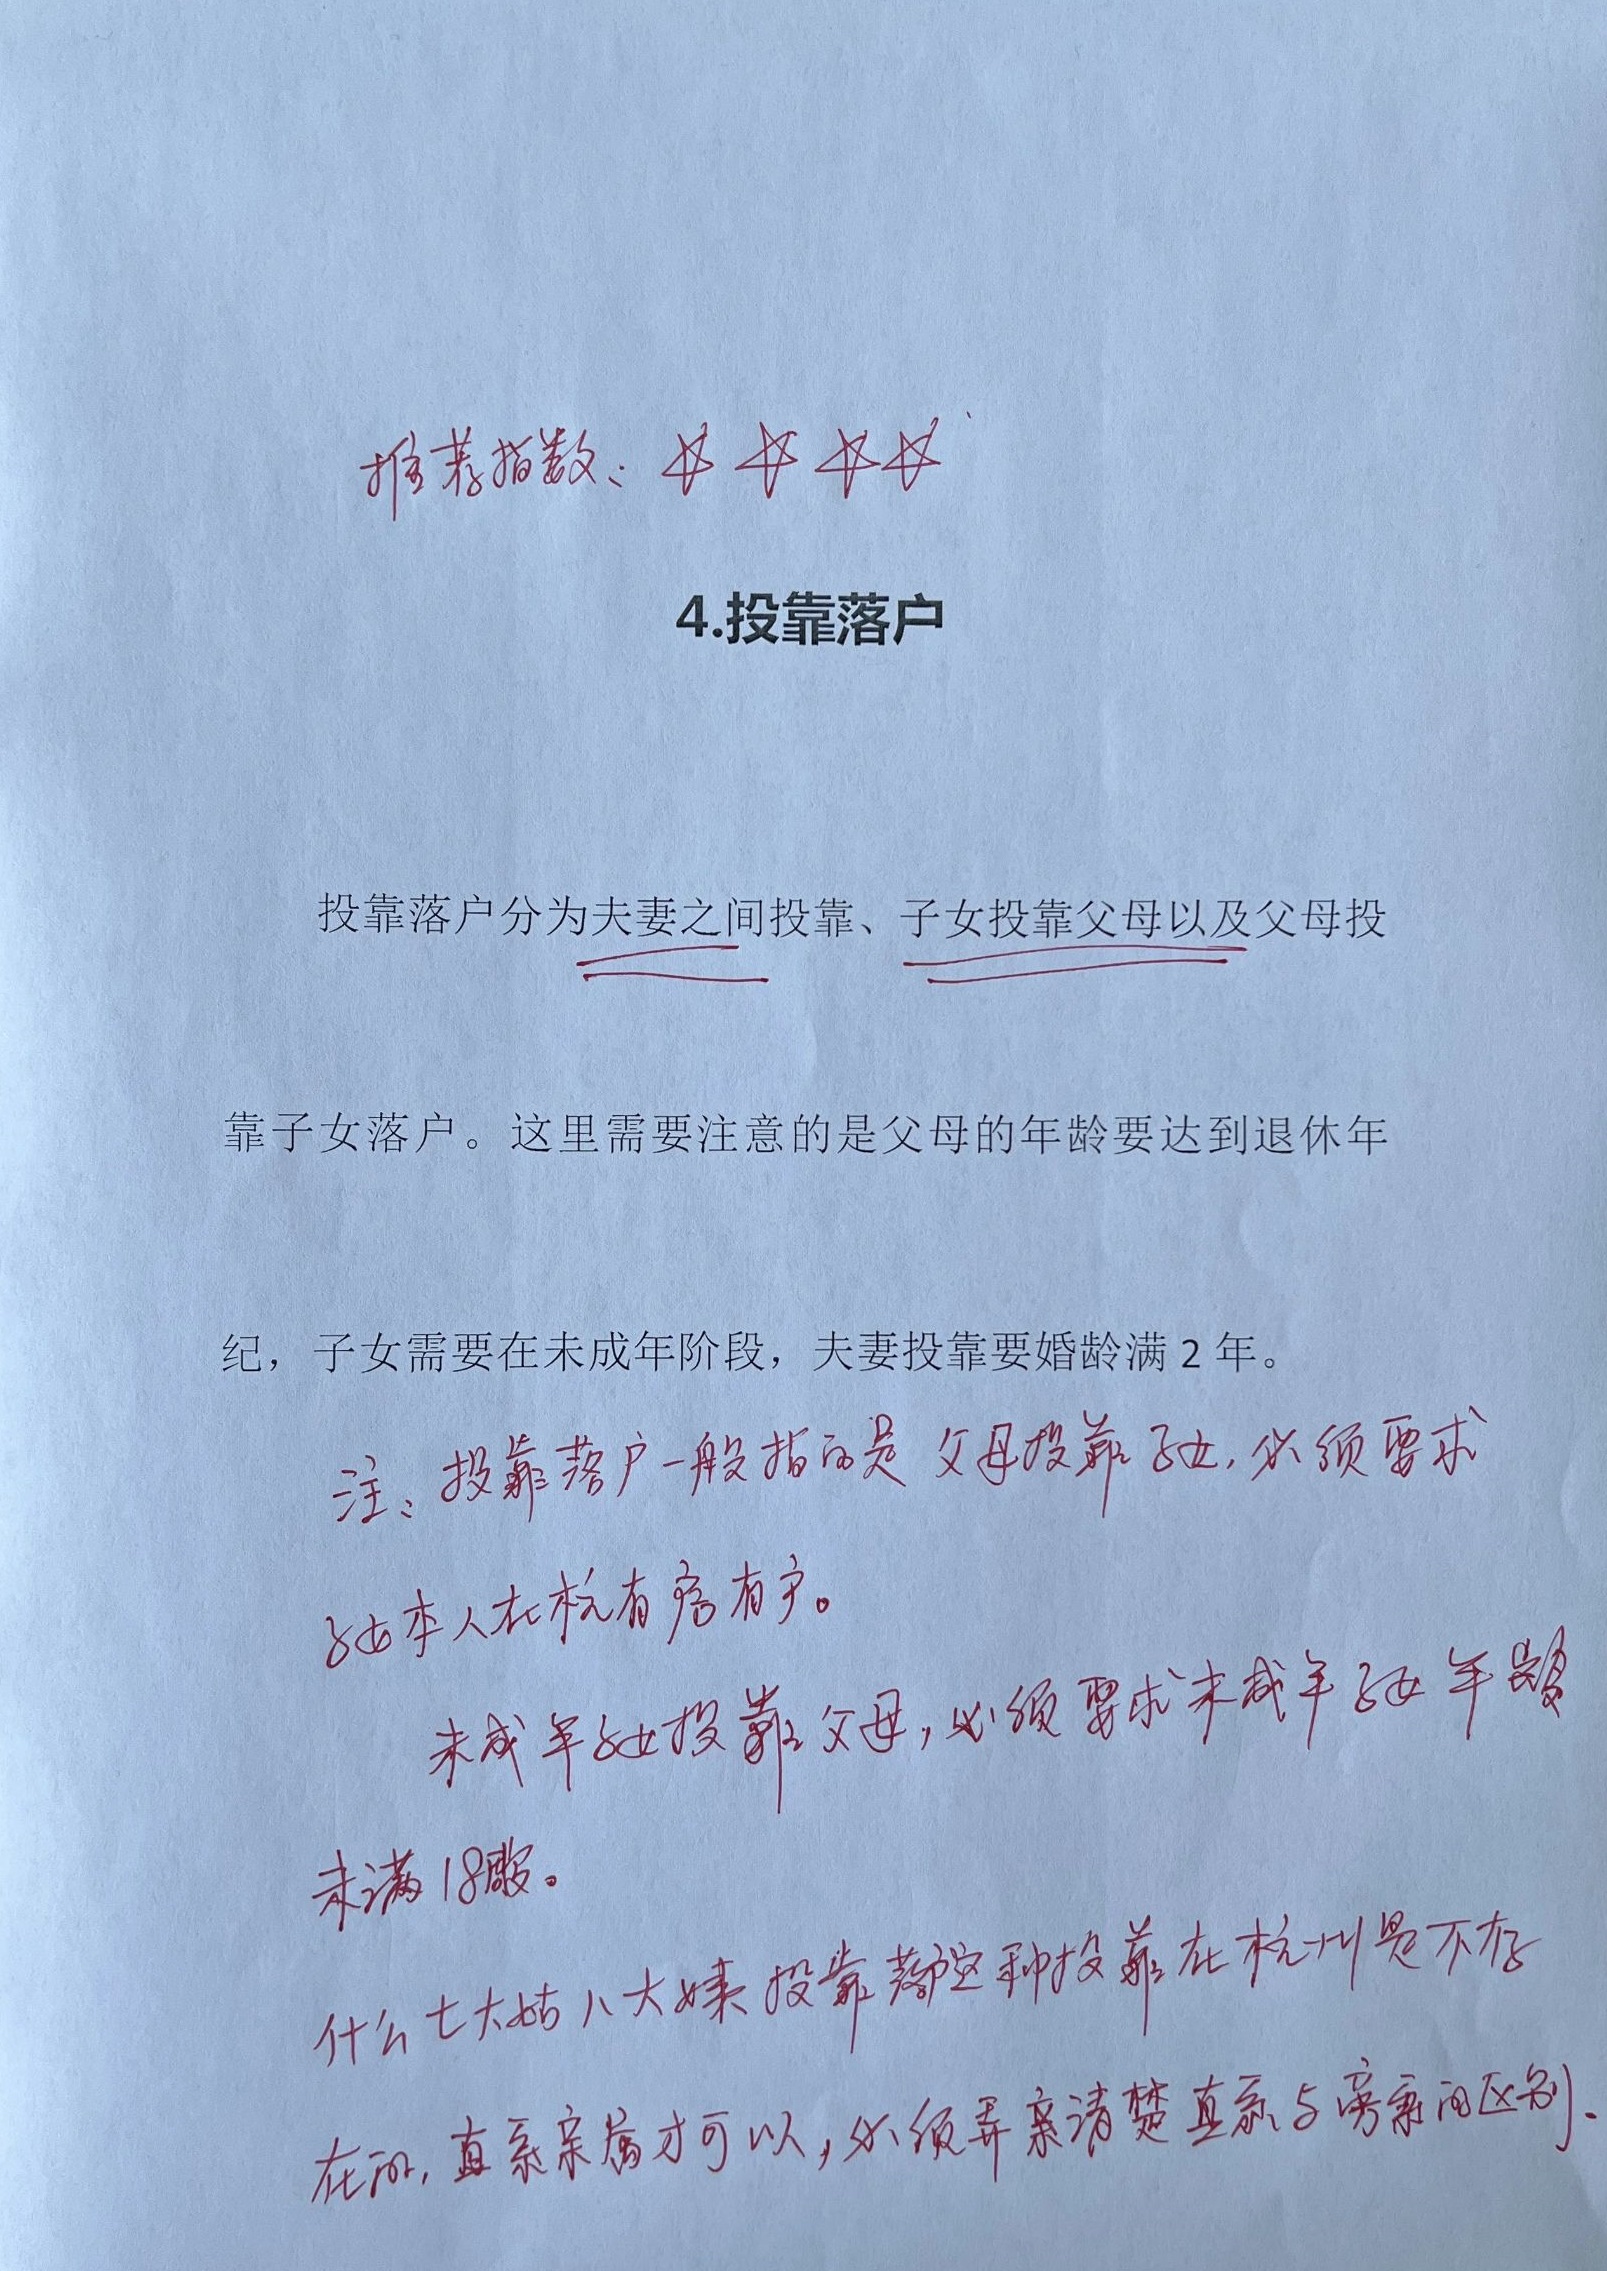 推荐指数：☆☆☆☆
4.投靠落户
投靠落户分为夫妻之间投靠、子女投靠父母以及父母投
靠子女落户。这里需要注意的是父母的年龄要达到退休年
纪，子女需要在未成年阶段，夫妻投靠要婚龄满 2 年。
注：投靠落户一般指的是父母投靠子女，必须要求
子女本人在杭有房有户。
未成年子女投靠父母，必须要求未成年子女年龄
未满18周岁。
什么七大姑八大姨投靠落户这种投靠在杭州是不存
在的，直系亲属才可以，必须弄清楚直系与旁系的区别.